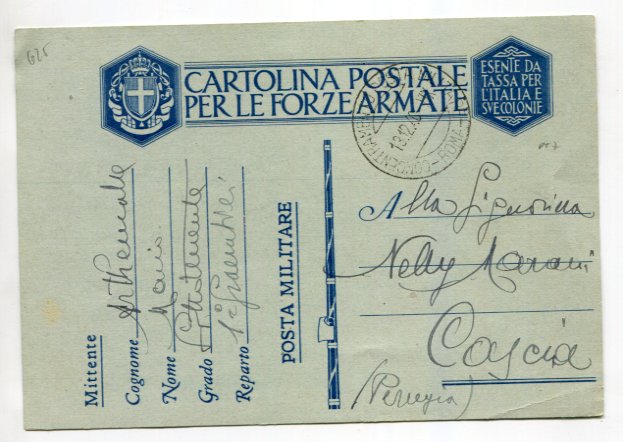 625
CARTOLINA POSTALE
PER LE FORZE ARMATE
ESENTE DA
TASSA PER
L'ITALIA E
SVE COLONIE
ROMA CONCENTRAMEN
13.12.40
Alla Signorina
Nelly Marani
Cascia
(Perugia)
POSTA MILITARE
Mittente
Cognome
Nome Mario
Grado Sottotenente
Reparto 1° Granatieri